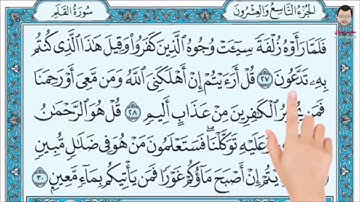 الجُزءُ التَّاسِعُ وَالعِشرُونَ
سُورَةُ القَلَمِ
فَلَمَّا رَأَوْهُ زُلْفَةً سِيٓـَٔتْ وُجُوهُ ٱلَّذِينَ كَفَرُوا۟ وَقِيلَ هَٰذَا ٱلَّذِى كُنتُم
بِهِۦ تَدَّعُونَ ٢٧ قُلْ أَرَءَيْتُمْ إِنْ أَهْلَكَنِىَ ٱللَّهُ وَمَن مَّعِىَ أَوْ رَحِمَنَا
فَمَن ٱلْكَٰفِرِينَ مِنْ عَذَابٍ أَلِيمٍ ٢٨ قُلْ هُوَ ٱلرَّحْمَٰنُ
عَلَيْهِ تَوَكَّلْنَا فَسَتَعْلَمُونَ مَنْ هُوَ فِى ضَلَٰلٍ مُّبِينٍ
إِنْ أَصْبَحَ مَآؤُكُمْ غَوْرًا فَمَن يَأْتِيكُم بِمَآءٍ مَّعِينٍ ٣٠